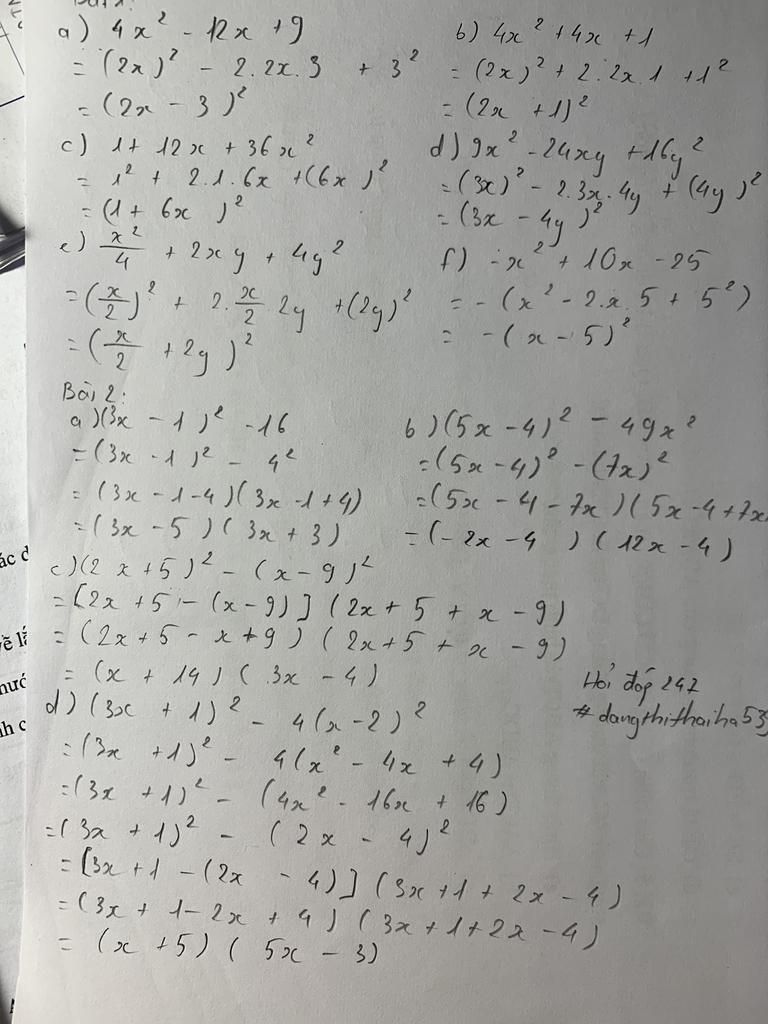 a) 4x² - 12x + 9
= (2x)² - 2.2x.3 + 3²
= (2x - 3)²
b) 4x² + 4x + 1
= (2x)² + 2.2x.1 + 1²
= (2x + 1)²
c) 1 + 12x + 36x²
= 1² + 2.1.6x + (6x)²
= (1 + 6x)²
d) 9x² - 24xy + 16y²
= (3x)² - 2.3x.4y + (4y)²
= (3x - 4y)²
e) x²/4 + 2xy + 4y²
= (x/2)² + 2.x/2 2y + (2y)²
= (x/2 + 2y)²
f) -x² + 10x - 25
= -(x² - 2.x.5 + 5²)
= -(x - 5)²
Bài 2:
a) (3x - 1)² - 16
= (3x - 1)² - 4²
= (3x - 1 - 4)(3x - 1 + 4)
= (3x - 5)(3x + 3)
b) (5x - 4)² - 49x²
= (5x - 4)² - (7x)²
= (5x - 4 - 7x)(5x - 4 + 7x
= (-2x - 4)(12x - 4)
c) (2x + 5)² - (x - 9)²
= [2x + 5 - (x - 9)](2x + 5 + x - 9)
= (2x + 5 - x + 9)(2x + 5 + x - 9)
= (x + 14)(3x - 4)
Hỏi đáp 247
#dangthithaiha53
d) (3x + 1)² - 4(x - 2)²
= (3x + 1)² - 4(x² - 4x + 4)
= (3x + 1)² - (4x² - 16x + 16)
= (3x + 1)² - (2x - 4)²
= [3x + 1 - (2x - 4)](3x + 1 + 2x - 4)
= (3x + 1 - 2x + 4)(3x + 1 + 2x - 4)
= (x + 5)(5x - 3)